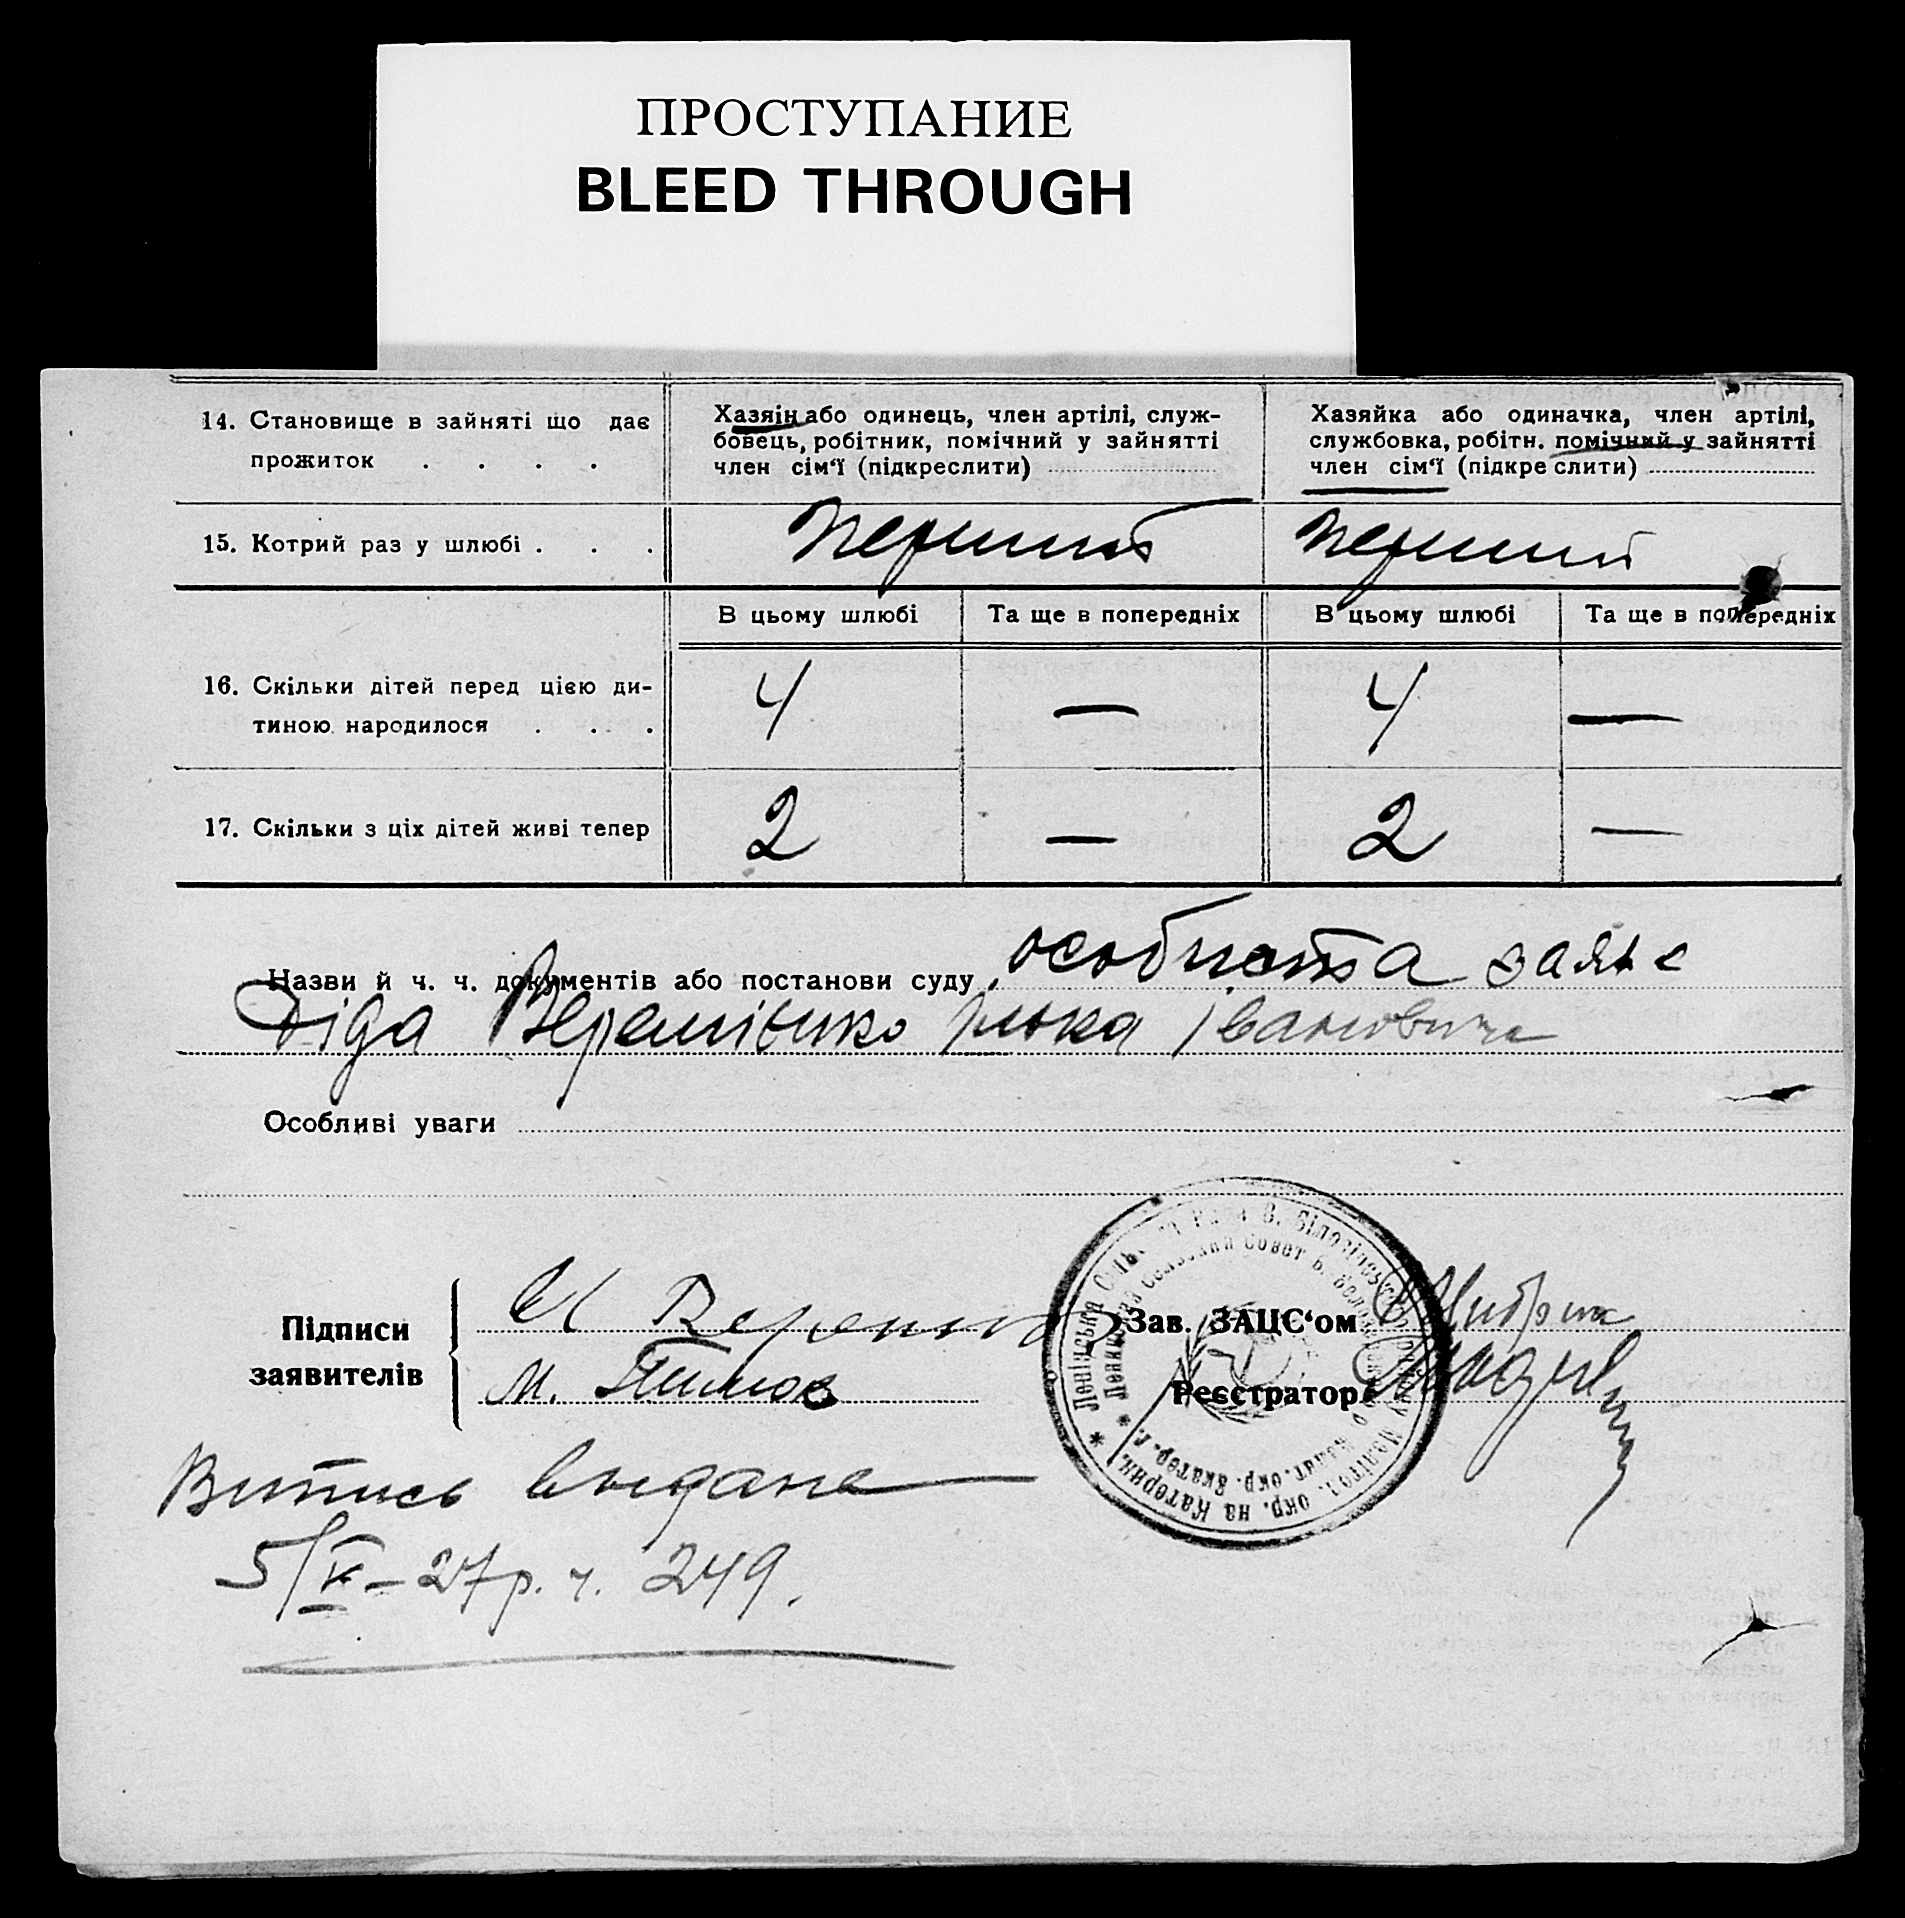 ПРОСТУПАНИЕ
BLEED THROUGH
14. Становище в зайняті що дає
прожиток . . . .
Хазяін або одинець, член артілі, служ-
бовець, робітник, помічний у зайнятті
член сім‘ї (підкреслити)
Хазяйка або одиначка, член артілі,
службовка, робітн. помічний у зайнятті
член сім‘ї (підкреслити)
15. Котрий раз у шлюбі . . .
перший
перший
В цьому шлюбі
Та ще в попередніх
В цьому шлюбі
Та ще в попередніх
16. Скільки дітей перед цією ди-
тиною народилося . . .
4 — 4 —
17. Скільки з ціх дітей живі тепер
2 — 2 —
Назви й ч. ч. документів або постанови суду особиста заява
Діда Івановича
Особливі уваги
Підписи
заявителів
М.
Зав. ЗАЦС‘ом
Реєстратор
Ленінська Рада В. Білозірськ Меліт. окр. на Катерин.
Сельский Совет Б. Мелит. окр. Екатер. г.
Випись выдана
5/V – 27 р. ч. 249.